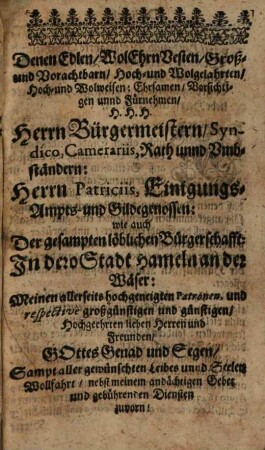 Denen Edlen/ WolEhrnVesten/ Groß-
und Vorachtbarn/ Hoch- und Wolgelahrten/
Hoch- und Wolweisen: Ehrsamen/ Vorsichti-
gen unnd Fürnehmen/
H. H. H.
Herrn Bürgermeistern/ Syn-
dico, Camerariis, Rath unnd Vmb-
ständern:
Herrn Patriciis, Einigungs-
Ampts- und Gildegenossen:
wie auch
Der gesampten löblichen Bürgerschafft:
In dero Stadt Hameln an der
Wäser:
Meinen allerseits hochgeneigten Patronen. und
respectivè großgünstigen und günstigen/
Hochgeehrten lieben Herren und
Freunden/
GOttes Genad und Segen/
Sampt aller gewünschten Leibes unnd Seelen
Wollfahrt/ nebst meinem andächtigen Gebet
und gebührenden Diensten
zuvorn!